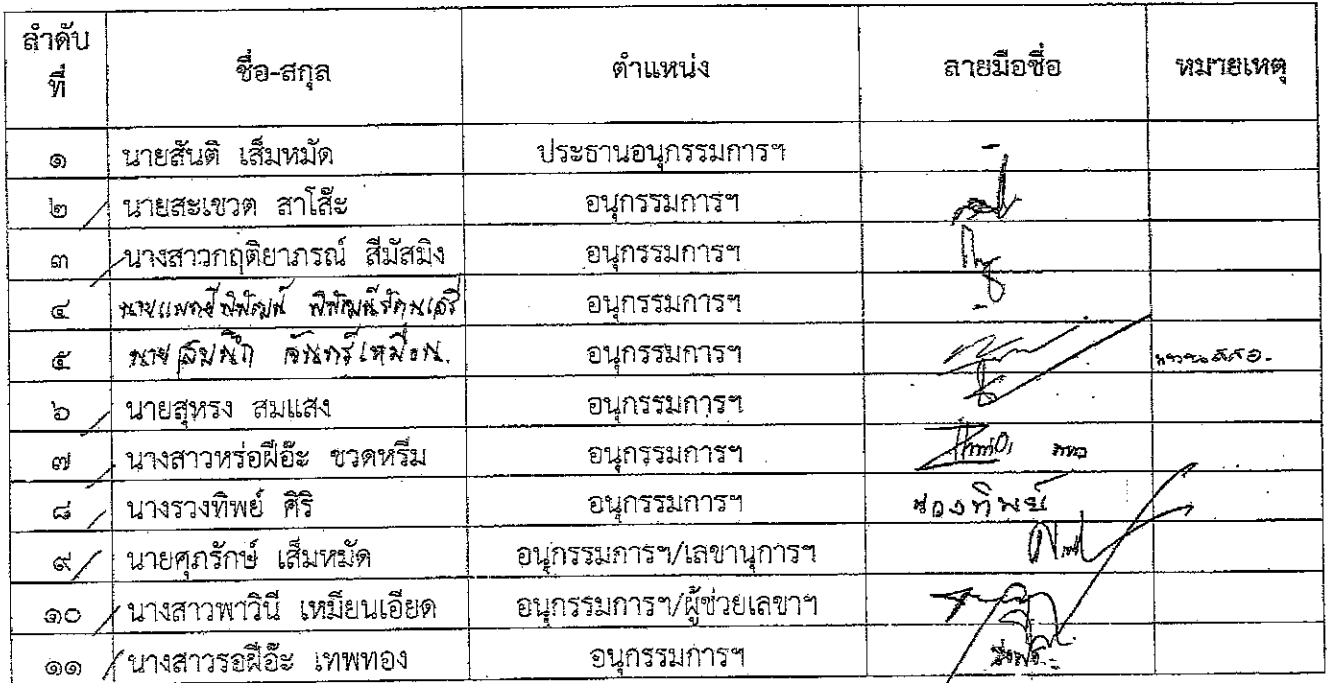 ลำดับ
ที่ ชื่อ-สกุล ตำแหน่ง ลายมือชื่อ หมายเหตุ
๑ นายสันติ เส็มหมัด ประธานอนุกรรมการฯ
๒ นายสะเขวต สาโส๊ะ อนุกรรมการฯ
๓ นางสาวกฤติยาภรณ์ สีมัสมิง อนุกรรมการฯ
๔ อนุกรรมการฯ
๕ นาย สมนึก จันทร์เหมือน. อนุกรรมการฯ
๖ นายสุหรง สมแสง อนุกรรมการฯ
๗ นางสาวหร่อฝีอ๊ะ ชวดหรีม อนุกรรมการฯ
๘ นางรวงทิพย์ ศิริ อนุกรรมการฯ รวงทิพย์
๙ นายศุภรักษ์ เส็มหมัด อนุกรรมการฯ/เลขานุการฯ
๑๐ นางสาวพาวินี เหมียนเอียด อนุกรรมการฯ/ผู้ช่วยเลขาฯ
๑๑ นางสาวรอฝีอ๊ะ เทพทอง อนุกรรมการฯ